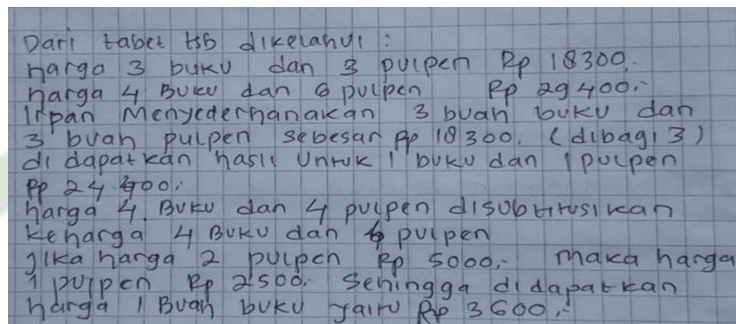 Dari tabel tsb diketahui :
harga 3 buku dan 3 pulpen Rp 18300,-
harga 4 Buku dan 6 pulpen Rp 29400,-
Irpan Menyederhanakan 3 buah buku dan
3 buah pulpen sebesar Rp 18300. (dibagi 3)
di dapatkan hasil Untuk 1 buku dan 1 pulpen
Rp 24.400,
harga 4 Buku dan 4 pulpen disubtitusikan
keharga 4 Buku dan 6 pulpen
jika harga 2 pulpen Rp 5000,- maka harga
1 pulpen Rp 2500. Sehingga didapatkan
harga 1 Buah buku yaitu Rp 3600,-